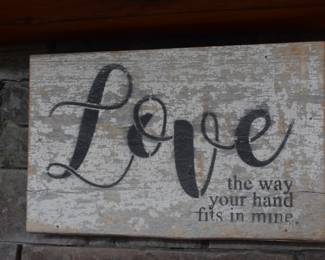 Love
the way
your hand
fits in mine.